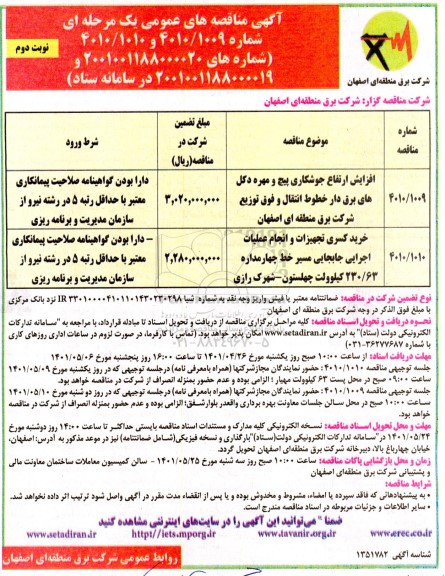 آگهی مناقصه های عمومی یک مرحله ای
شماره ۴۰۱۰/۱۰۰۹ و ۴۰۱۰/۱۰۱۰
(شماره های ۲۰۰۱۰۰۱۱۸۸۰۰۰۰۲۰ و
۲۰۰۱۰۰۱۱۸۸۰۰۰۰۱۹ در سامانه ستاد)
نوبت دوم
شرکت برق منطقه‌ای اصفهان
شرکت مناقصه گزار: شرکت برق منطقه‌ای اصفهان
شماره مناقصه
موضوع مناقصه
مبلغ تضمین شرکت در مناقصه(ریال)
شرط ورود
۴۰۱۰/۱۰۰۹
افزایش ارتفاع جوشکاری پیچ و مهره دکل
های برق دار خطوط انتقال و فوق توزیع
شرکت برق منطقه ای اصفهان
۳,۰۲۰,۰۰۰,۰۰۰
دارا بودن گواهینامه صلاحیت پیمانکاری
معتبر با حداقل رتبه ۵ در رشته نیرو از
سازمان مدیریت و برنامه ریزی
۴۰۱۰/۱۰۱۰
خرید کسری تجهیزات و انجام عملیات
اجرایی جابجایی مسیر خط چهارمداره
۲۳۰/۶۳ کیلوولت چهلستون-شهرک رازی
۲,۲۸۰,۰۰۰,۰۰۰
– دارا بودن گواهینامه صلاحیت پیمانکاری
معتبر با حداقل رتبه ۵ در رشته نیرو از
سازمان مدیریت و برنامه ریزی
نوع تضمین شرکت در مناقصه: ضمانتنامه معتبر یا فیش واریز وجه نقد به شماره شبا نزد بانک مرکزی
با مبلغ فوق الذکر در وجه شرکت برق منطقه ای اصفهان
نحوه دریافت و تحویل اسناد مناقصه: کلیه مراحل برگزاری مناقصه از دریافت و تحویل اسناد تا مبادله قرارداد، با مراجعه به "سامانه تدارکات
الکترونیکی دولت (ستاد)" به آدرس www.setadiran.ir امکان پذیر خواهد بود. (تماس با کارفرما، در صورت لزوم در ساعات اداری روزهای کاری
با شماره ۳۶۲۷۷۶۸۷-۰۳۱)
مهلت دریافت اسناد: از ساعت ۱۰:۰۰ صبح روز یکشنبه مورخ ۱۴۰۱/۰۴/۲۶ تا ساعت ۱۶:۰۰ روز پنجشنبه مورخ ۱۴۰۱/۰۵/۰۶
جلسه توجیهی مناقصه ۴۰۱۰/۱۰۱۰: حضور نمایندگان مجازشرکتها (همراه بامعرفی نامه) درجلسه توجیهی که در روز یکشنبه مورخ ۱۴۰۱/۰۵/۰۹
ساعت ۰۹:۰۰ صبح در محل پست ۶۳ کیلوولت مهیار؛ الزامی بوده و عدم حضور بمنزله انصراف از شرکت در مناقصه خواهد بود.
جلسه توجیهی مناقصه ۴۰۱۰/۱۰۰۹: حضور نمایندگان مجازشرکتها (همراه بامعرفی نامه) درجلسه توجیهی که در روز دو شنبه مورخ ۱۴۰۱/۰۵/۱۰
ساعت ۱۰:۰۰ صبح در محل سالن جلسات معاونت بهره برداری الزامی بوده و عدم حضور بمنزله انصراف از شرکت در مناقصه
خواهد بود.
مهلت و محل تحویل اسناد مناقصه: نسخه الکترونیکی کلیه مدارک و مستندات اسناد مناقصه بایستی حداکثر تا ساعت ۱۴:۰۰ روز دوشنبه مورخ
۱۴۰۱/۰۵/۲۴ در"سامانه تدارکات الکترونیکی دولت(ستاد)"بارگذاری و نسخه فیزیکی(شامل ضمانتنامه) نیز در موعد مذکور به آدرس: اصفهان،
خیابان چهارباغ بالا، دبیرخانه شرکت برق منطقه‌ای اصفهان تحویل گردد.
زمان و محل بازگشایی پاکات مناقصه: ساعت ۱۰:۰۰ صبح روز سه شنبه مورخ ۱۴۰۱/۰۵/۲۵ - سالن کمیسیون معاملات ساختمان معاونت مالی
و پشتیبانی شرکت برق منطقه‌ای اصفهان
شرایط مناقصه:
- به پیشنهاداتی که فاقد سپرده یا امضاء، مشروط و مخدوش بوده و یا پس از انقضاء مدت مقرر در آگهی واصل شود ترتیب اثر داده نخواهد شد.
- سایر اطلاعات و جزئیات مربوطه در اسناد مناقصه مندرج است.
ضمنا " می‌توانید این آگهی را در سایت‌های اینترنتی مشاهده کنید
www.erec.co.ir www.tavanir.org.ir http//iets.mporg.ir www.setadiran.ir
شناسه آگهی ۱۳۵۱۷۸۲
روابط عمومی شرکت برق منطقه‌ای اصفهان